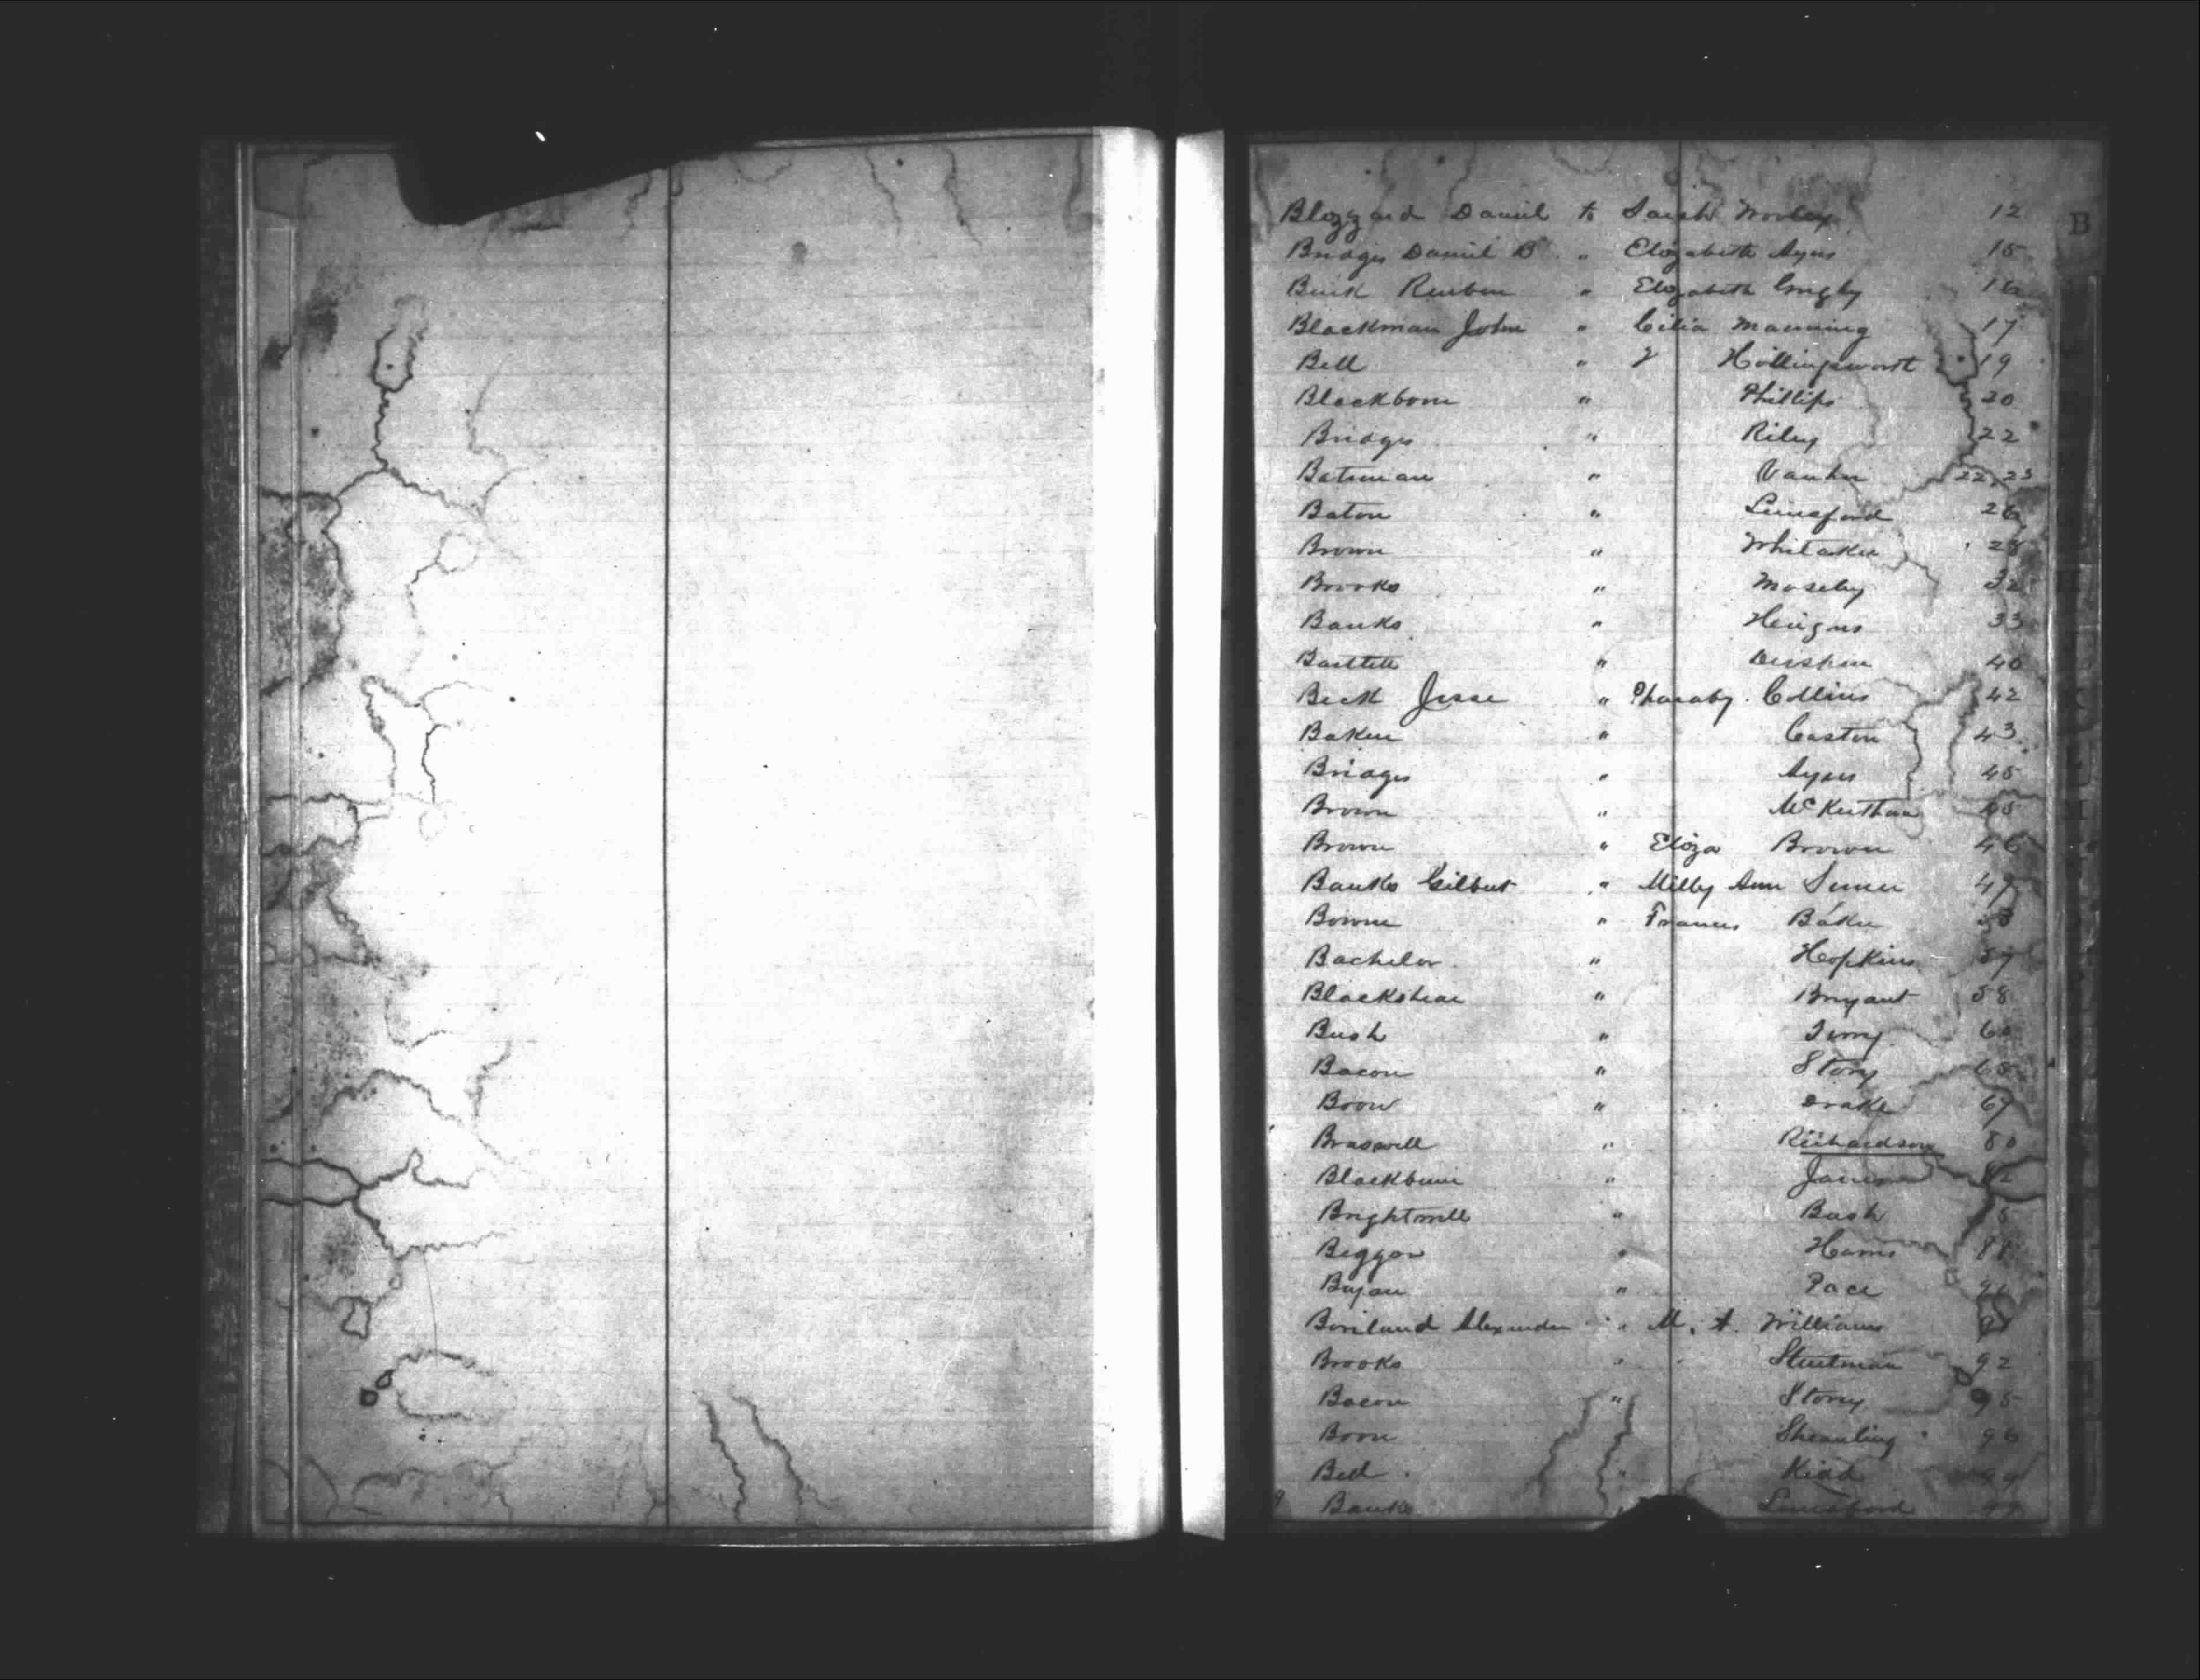 B
Blozzard Daniel to Sarah Worley 12
Bridges Daniel B " Elizabeth Ayres 15
Buik Reuben " Elizabeth 16
Blackman John " Cilia Manning 17
Bell " Hollingsworst 19
Blackborn " Phillips 20
Bridges " Riley 22
Bateman " 22,23
Baton " Lunsford 26
Brown " Whitaker 28
Brooks " Moseby 32
Banks " 33
Bartlett " 40
Beck Jesse " Pharaby Collins 42
Baker " Caston 43
Bridges " Ayres 45
Brown " 45
Brown " Eliza Brown 46
Banks Gilbert " Milly Ann 47
Bowne " Frances Baker
Bachelor " Hopkins 57
Blackshear " Bryant 58
Bush " 60
Bacon " Story 65
Boon " Drake 67
Braswell " Richardson 80
Blackburn "
Brightwell " Bush
Beggon " Harris 88
Bryan " Pace
Boriland Alexander " M. A. Williams
Brooks " Stutman 92
Bacon " Story 95
Boon " 96
Bell " Kidd
Banks " Lunsford